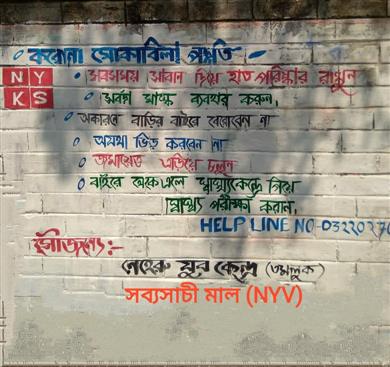 করোনা মোকাবিলা পদ্ধতি -
NY
KS
সবসময় সাবান দিয়ে হাত পরিষ্কার রাখুন
সর্বদা মাস্ক ব্যবহার করুন,
অকারণে বাড়ির বাইরে বেরোবেন না
অযথা ভিড় করবেন না
জমায়েত এড়িয়ে চলুন
বাইরে থেকে এলে স্বাস্থ্যকেন্দ্রে গিয়ে
স্বাস্থ্য পরীক্ষা করান,
HELP LINE NO-03220270
সৌজন্যে:-
নেহেরু যুব কেন্দ্র (তমলুক)
সব্যসাচী মাল (NYV)